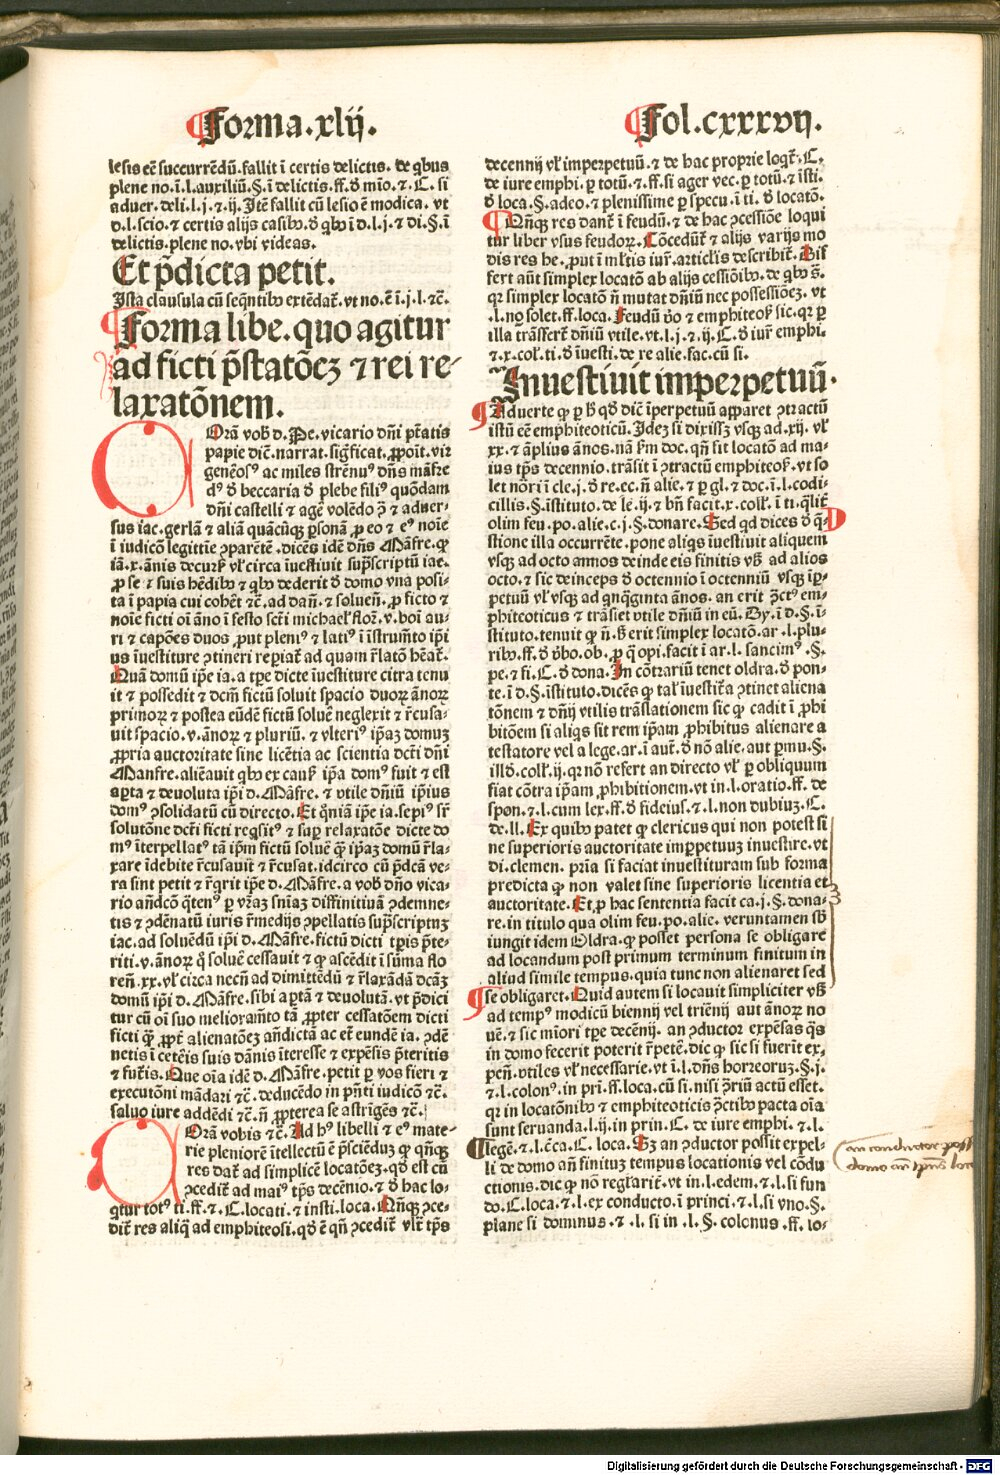 Forma.xlij.
Fol.cxxxvij.
lesis eē succurrēdū. fallit ī certis delictis. de qbus
plene no. ī. l. auxiliū. §. ī delictis. ff. đ mīo. ⁊ . C. si
aduer. deli. l. j. ⁊ ij. Itē fallit cū lesio ē modica. vt
đ. l. scio. ⁊ certis alijs casibꝰ. đ qbꝰ ī đ. l. j. ⁊ di. §. ī
delictis. plene no. vbi videas.
Et p̄dicta petit.
Ista clausula cū seqn̄tibꝰ extēdat̄. vt no. ē ī. j. l. ⁊c̄.
Forma libe. quo agitur
ad ficti p̄statōeꝫ ⁊ rei re⸗
laxatōnem.
Corā vob̄ đ. Pe. vicario dn̄i ptātis
papie dic̄. narrat. sigficat. ꝓpoīt. vir
genēosꝰ ac miles strēnuꝰ dn̄s māfre
dꝰ đ beccaria đ plebe filiꝰ quōdam
dn̄i castelli ⁊ agē volēdo ꝓ ⁊ aduer⸗
sus iac. gerlā ⁊ aliā quācūqꝫ ꝑsonā ꝓ eo ⁊ eꝰ noīe
ī iudicō legittīe ꝯparētē. dicēs idē dn̄s Māfre. ꝙ
iā. x. annis decurs̄ vl̄ circa īuestiuit sup̄scriptū iac.
ꝓ se ⁊ suis hēdibꝰ ⁊ qbꝰ dederit đ domo vna posi⸗
ta ī papia cui cohēt ⁊c̄. ad dan̄. ⁊ soluen̄. ꝓ ficto ⁊
noīe ficti oī āno ī festo scti michael̄ flor̄. v. boī au⸗
ri ⁊ capōes duos ꝓut pleniꝰ ⁊ latiꝰ ī īstrum̄to ip̄i
us īuestiture ꝯtineri reꝑiat̄ ad quam r̄latō hēat̄.
Quā domū ip̄e ia. a tꝑe dicte īuestiture citra tenu
it ⁊ possedit ⁊ dcm̄ fictū soluit spacio duoꝝ ānoꝝ
primoꝝ ⁊ postea eūdē fictū soluē neglexit ⁊ r̄cusa⸗
uit spacio. v. ānoꝝ ⁊ pluriū. ⁊ vlteriꝰ ip̄aꝫ domuꝫ
ꝓpria auctoritate sine licētia ac scientia dcti dn̄i
Manfre. aliēauit qbꝰ ex cauſ ip̄a domꝰ fuit ⁊ est
aꝑta ⁊ deuoluta ip̄i đ. Māfre. ⁊ vtile dn̄iū ip̄ius
domꝰ ꝯsolidatū cū directo. Et qm̄iā ip̄e ia. sepiꝰ sr̄
solutōne dcti ficti reqsitꝰ ⁊ suꝑ relaxatōe dicte do
mꝰ īterpellatꝰ tā ip̄m fictū soluē qꝫ ip̄aꝫ domū r̄la⸗
xare īdebite r̄cusauit ⁊ r̄cusat. idcirco cū p̄dcā ve⸗
ra sint petit ⁊ r̄qrit ip̄e đ. Māfre. a vob̄ dn̄o vica⸗
rio an̄dcō qtenꝰ ꝑ vr̄aꝫ sn̄iaꝫ diffinitiuā ꝯdemne⸗
tis ⁊ ꝯdēnatū iuris r̄medijs ꝯpellatis sup̄scriptuꝫ
iac. ad soluēdū ip̄i đ. Māfre. fictū dicti tꝑis p̄te⸗
riti. v. ānoꝝ q̄ soluē cessauit ⁊ ꝙ ascēdit ī sūma flo
ren̄. xx. vl̄ circa necn̄ ad dimittēdū ⁊ r̄laxādā dcāꝫ
domū ip̄i đ. Māfre. sibi aꝑtā ⁊ deuolutā. vt p̄dici
tur cū oī suo melioram̄to tā ꝓpter cessatōem dicti
ficti qꝫ ꝓpt̄ alienatōeꝫ an̄dicta ac et̄ eundē ia. ꝯdē
netis ī cetēis suis dānis īteresse ⁊ expēsis p̄teritis
⁊ fut̄is. Que oīa idē đ. Māfre. petit ꝑ vos fieri ⁊
executōni mādari ⁊c̄. deducēdo in p̄nti iudicō ⁊c̄.
saluo iure addēdi ⁊c̄. n̄ ꝓpterea se astrīgēs ⁊c̄.
Corā vobis ⁊c̄. Ad hꝰ libelli ⁊ eꝰ mate⸗
rie pleniorē ītellectū ē p̄sciēduꝫ ꝙ qn̄qꝫ
res dat̄ ad simplicē locatōeꝫ. qđ est cū
ꝯcedit̄ ad maiꝰ tp̄s decēnio. ⁊ đ hac lo⸗
qtur totꝰ ti. ff. ⁊ . C. locati. ⁊ insti. loca. Qn̄qꝫ ꝯce⸗
dit̄ res aliq̄ ad emphiteosi. qđ ē qn̄ ꝯcedit̄ vltr̄ tp̄s
decennij vl̄ imperpetuū. ⁊ de hac proprie loqt̄. C.
de iure emphi. ꝑ totū. ⁊ ff. si ager vec. ꝑ totū. ⁊ īsti.
đ loca. §. adeo. ⁊ plenissime ꝑ specu. ī ti. đ locatō.
Qn̄qꝫ res dant̄ ī feudū. ⁊ de hac ꝯcessiōe loqui
tur liber vsus feudoꝝ. Cōcedūt̄ ⁊ alijs varijs mo
dis res he. ꝓut ī ml̄tis iur̄. articl̄is describit̄. Dif
fert aūt simplex locatō ab alijs cessiōibꝰ. de qbꝰ s̄.
qꝛ simplex locatō n̄ mutat dn̄iū nec possessiōeꝫ. vt
.l. no solet. ff. loca. Feudū vō ⁊ emphiteos̄ sic. qꝛ ꝑ
illa trāsfert̄ dn̄iū vtile. vt. l. j. ⁊ ij. C. đ iur̄ emphi.
⁊ .x. col̄. ti. đ īuesti. de re alie. fac. cū si.
Inuestiuit imperpetuū.
Aduerte ꝙ ꝑ h̄ qđ dic̄ īperpetuū apparet ꝯtractū
istū eē emp̄hiteoticū. Ideꝫ si dixissꝫ vsqꝫ ad. xij. vl̄
xx. ⁊ āplius ānos. nā ẜm doc. qn̄ fit locatō ad ma⸗
ius tp̄s decennio. trāsit ī ꝯtractū emphiteos̄. vt so
let nōri ī cle. j. đ re. ec. n̄ alie. ⁊ ꝑ gl. ⁊ doc. ī. l. codi⸗
cillis. §. īstituto. de le. ij. ⁊ bn̄ facit. x. coll̄. ī ti. qlit̄
olim feu. po. alie. c. j. §. donare. Sed qd dices đ q̄⸗
stione illa occurrēte. pone aliqs īuestiuit aliquem
vsqꝫ ad octo annos deinde eis finitis vsqꝫ ad alios
octo. ⁊ sic deinceps đ octennio ī octenniū vsqꝫ īꝑ⸗
petuū vl̄ vsqꝫ ad qnqginta ānos. an erit ꝯctꝰ em⸗
phiteoticus ⁊ trāsiet vtile dn̄iū in eū. Dy. ī đ. §. ī⸗
stituto. tenuit ꝙ n̄. sꝫ erit simplex locatō. ar. l. plu⸗
ribꝰ. ff. đ v̄bo. ob. ꝓ q̄ opi. facit ī ar. l. sancimꝰ. §.
pe. ⁊ fi. C. đ dona. In cōtrariū tenet oldra. đ pon⸗
te. ī đ. §. īstituto. dicēs ꝙ tal̄ īuestit̄a ꝯtinet aliena
tōnem ⁊ dn̄ij vtilis trāslationem sic ꝙ cadit ī ꝓhi
bitōem si aliqs sit rem ip̄am ꝓhibitus alienare a
testatore vel a lege. ar. ī auē. đ nō alie. aut ꝑmu. §.
illđ. coll̄. ij. qꝛ nō refert an directo vl̄ ꝑ obliquum
fiat cōtra ip̄am ꝓhibitionem. vt in. l. oratio. ff. de
spon. ⁊ . l. cum lex. ff. đ fideius. ⁊ . l. non dubiuꝫ. C.
de. ll. Ex quibꝰ patet ꝙ clericus qui non potest si
ne superioris auctoritate imꝑpetuuꝫ inuestire. vt
di. clemen. pria si faciat inuestituram sub forma
predicta ꝙ non valet sine superioris licentia et
auctoritate. Et ꝓ hac sententia facit ca. j. §. dona⸗
re. in titulo qua olim feu. po. alie. veruntamen sb̄
iungit idem Oldra. ꝙ posset persona se obligare
ad locandum post primum terminum finitum in
aliud simile tempus. quia tunc non alienaret sed
se obligaret. Quid autem si locauit simpliciter vsqꝫ
ad tempꝰ modicū biennij vel triēnij aut ānoꝝ no
uē. ⁊ sic miori tꝑe decēnij. an ꝯductor expēsas qs
in domo fecerit poterit r̄petē. dic ꝙ sic si fuerīt ex⸗
pen̄. vtiles vl̄ necessarie. vt ī. l. dn̄s horreoruꝫ. §. j.
⁊ . l. colonꝰ. in pri. ff. loca. cū si. nisi ꝯriū actū esset.
qꝛ in locatōnibꝰ ⁊ emphiteoticis ꝯctibꝰ pacta oīa
sunt seruanda. l. ij. in prin. C. de iure emphi. ⁊ . l.
lege. ⁊ . l. c̄ca. C. loca. Sꝫ an ꝯductor possit expel⸗
li de domo an̄ finituꝫ tempus locationis vel cōdu
ctionis. dic ꝙ nō regl̄arit̄. vt in. l. edem. ⁊ . l. si fun
do. C. loca. ⁊ . l. ex conducto. ī princi. ⁊ . l. si vno. §.
plane si dominus. ⁊ . l. si in. l. §. colonus. ff. lo⸗
an conductor poss
domo an̄ tp̄us loca
Digitalisierung gefördert durch die Deutsche Forschungsgemeinschaft - DFG